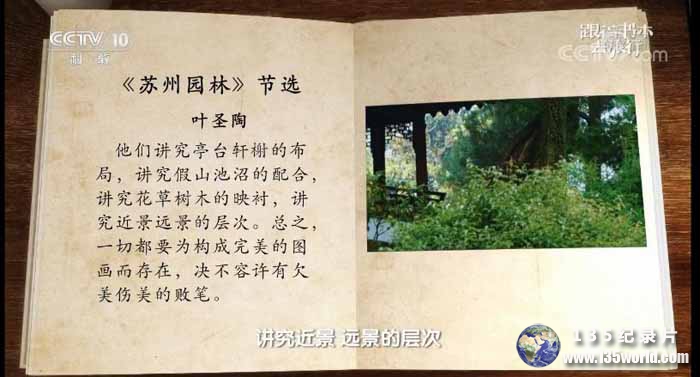 CCTV 10
科教
跟着书本
去旅行
CCTV.com
《苏州园林》节选
叶圣陶
他们讲究亭台轩榭的布
局，讲究假山池沼的配合，
讲究花草树木的映衬，讲
究近景远景的层次。总之，
一切都要为构成完美的图
画而存在，决不容许有欠
美伤美的败笔。
讲究近景 远景的层次
135纪录片
www.135world.com